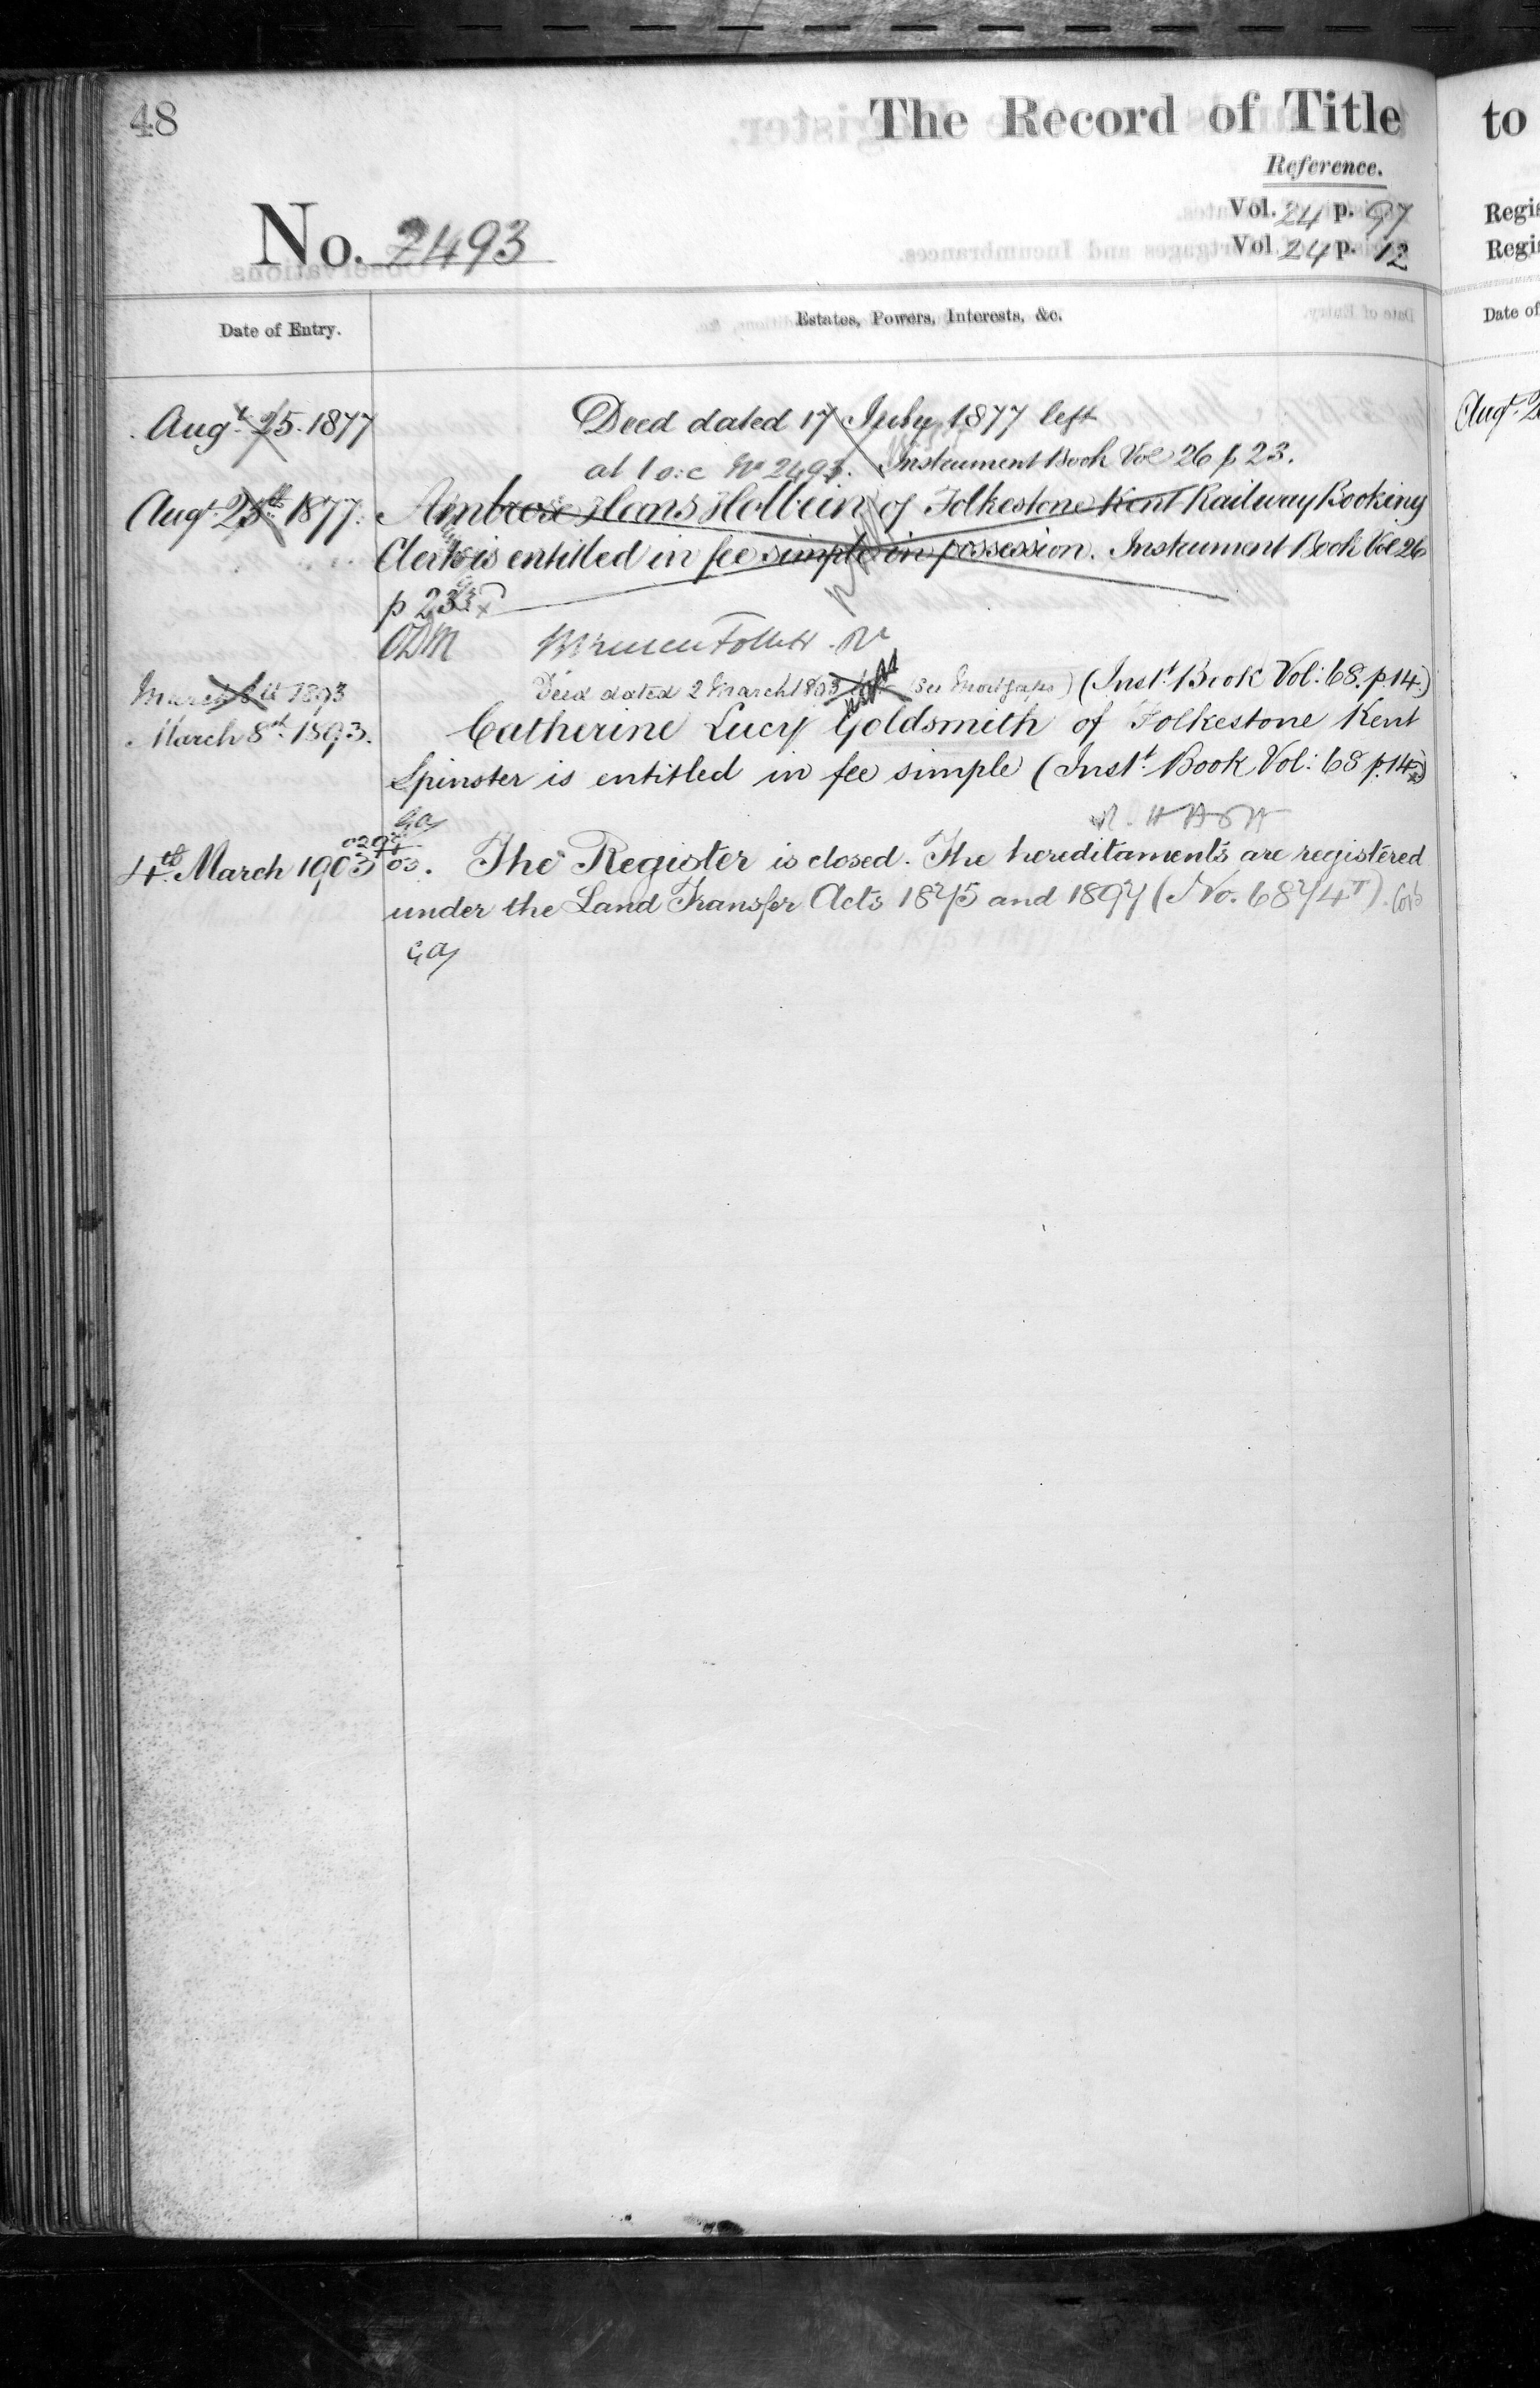 48
The Record of Title
Reference.
No. 2493
Vol. 24 p. 97
Vol. 24 p. 12
Date of Entry.
Estates, Powers, Interests, &c.
Augt. 25. 1877
Deed dated 17 July 1877 left
at 1 o:c No 2493. Instrument Book Vol 26 p 23.
Augt. 25th. 1877.
Ambrose Hans Holbein of Folkestone Kent Railway Booking
Clerk is entitled in fee simple in possession. Instrument Book Vol 26
p 23
ODM
March 8th 1893
Deed dated 2 March 1893 (See Mortgages) (Instt. Book Vol: 68. p. 14.)
March 8th. 1893.
Catherine Lucy Goldsmith of Folkestone Kent
Spinster is entitled in fee simple (Instt. Book Vol: 68 p. 14.)
4th. March 1903
The Register is closed. The hereditaments are registered
under the Land Transfer Acts 1875 and 1897 (No. 6874T).
to
Regis
Regi
Date of
Augt. 2